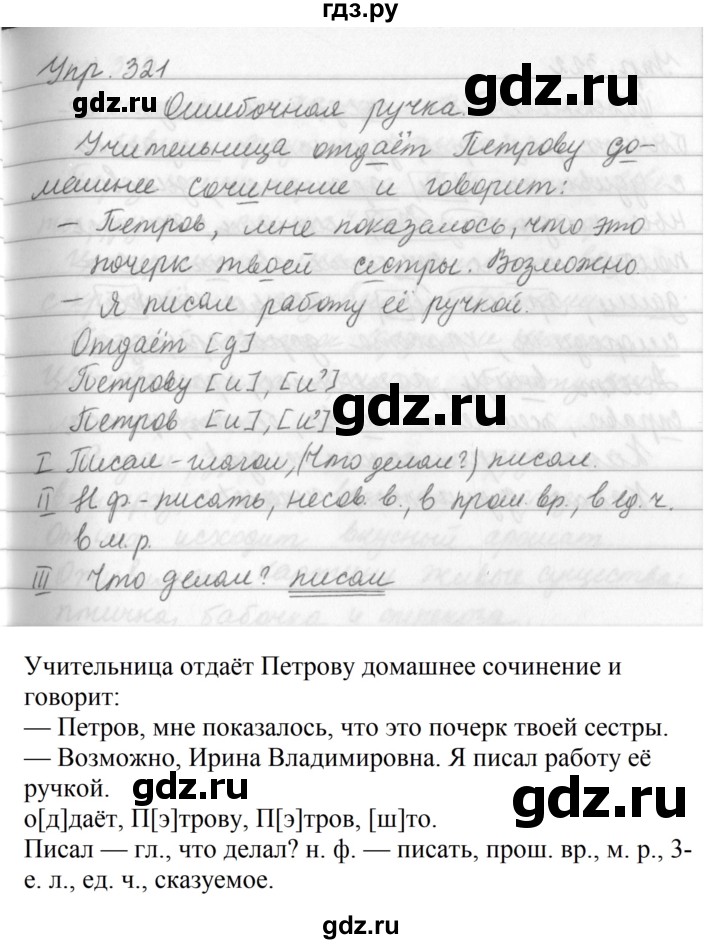 гдз.ру
Упр. 321
gdz.ru
gdz.ru
Ошибочная ручка.
Учительница отдаёт Петрову до-
машнее сочинение и говорит:
– Петров, мне показалось, что это
почерк твоей сестры. Возможно
– Я писал работу её ручкой.
Отдаёт [д]
Петрову [и], [и³]
Петров [и], [и³]
gdz.ru
I Писал – глагол, (Что делал?) писал.
II Н.ф – писать, несов. в., в прош. вр., в ед. ч.
в м. р.
III Что делал? писал
Учительница отдаёт Петрову домашнее сочинение и
говорит:
— Петров, мне показалось, что это почерк твоей сестры.
— Возможно, Ирина Владимировна. Я писал работу её
ручкой.
gdz.ru
gdz.ru
о[д]даёт, П[э]трову, П[э]тров, [ш]то.
Писал — гл., что делал? н. ф. — писать, прош. вр., м. р., 3-
е. л., ед. ч., сказуемое.
gdz.ru